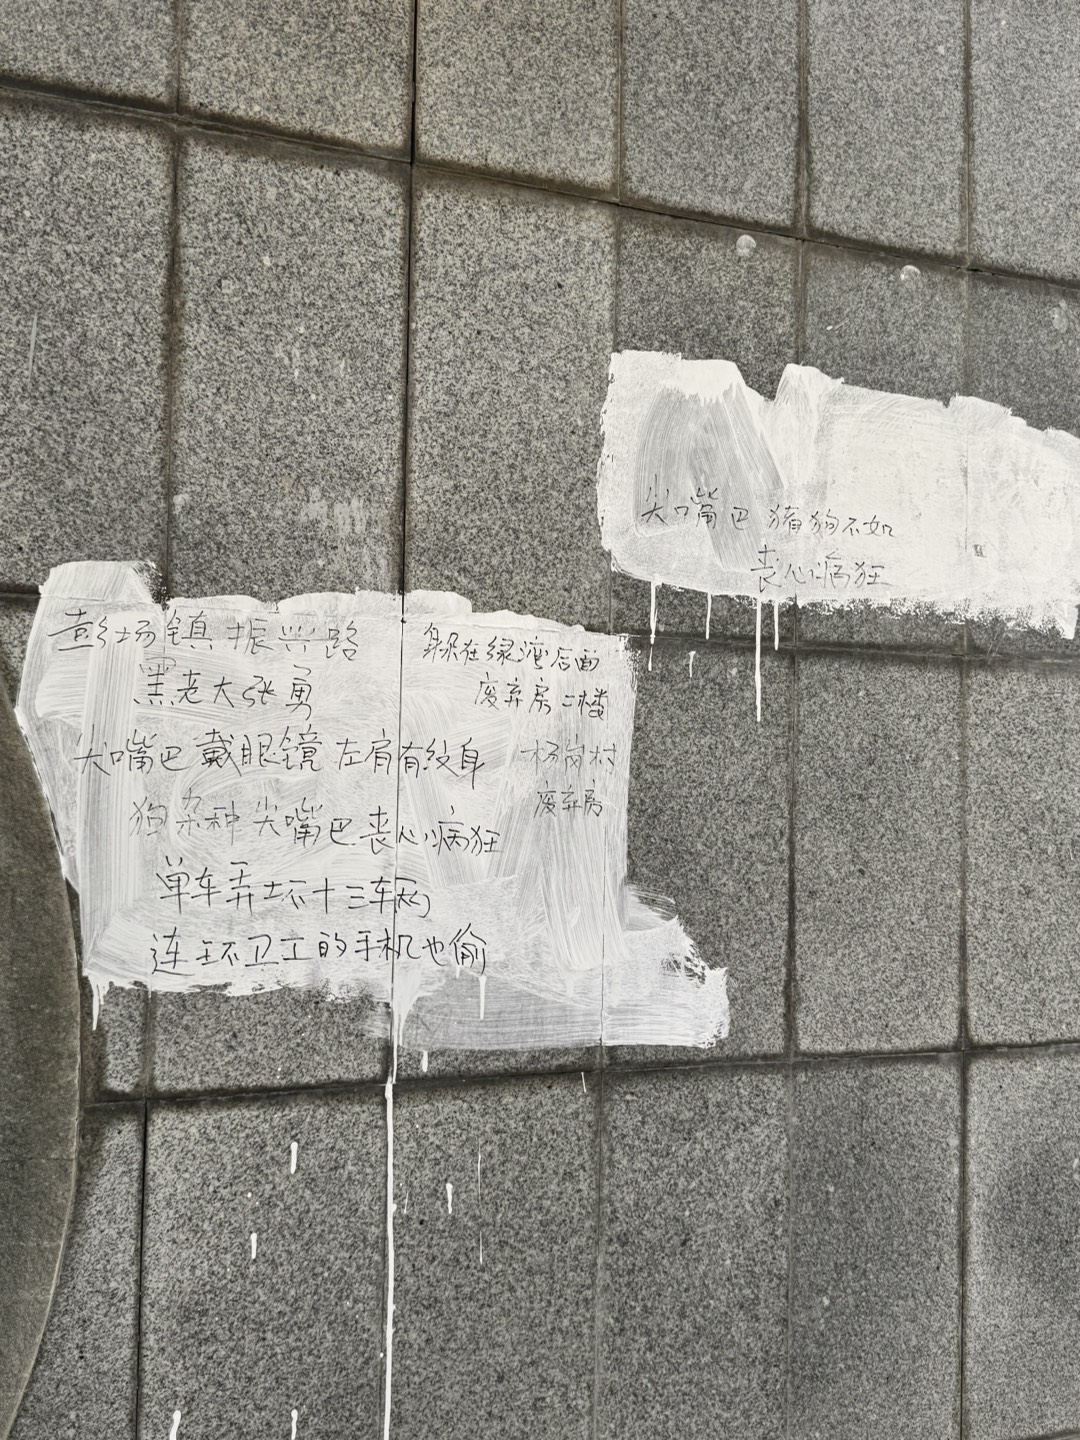 尖嘴巴 猪狗不如
丧心病狂
彭场镇振兴路
黑老大张勇
尖嘴巴戴眼镜左肩有纹身
狗杂种尖嘴巴丧心病狂
单车弄坏十三车辆
连环卫工的手机也偷
躲在绿湾后面
废弃房二楼
杨岗村
废弃房